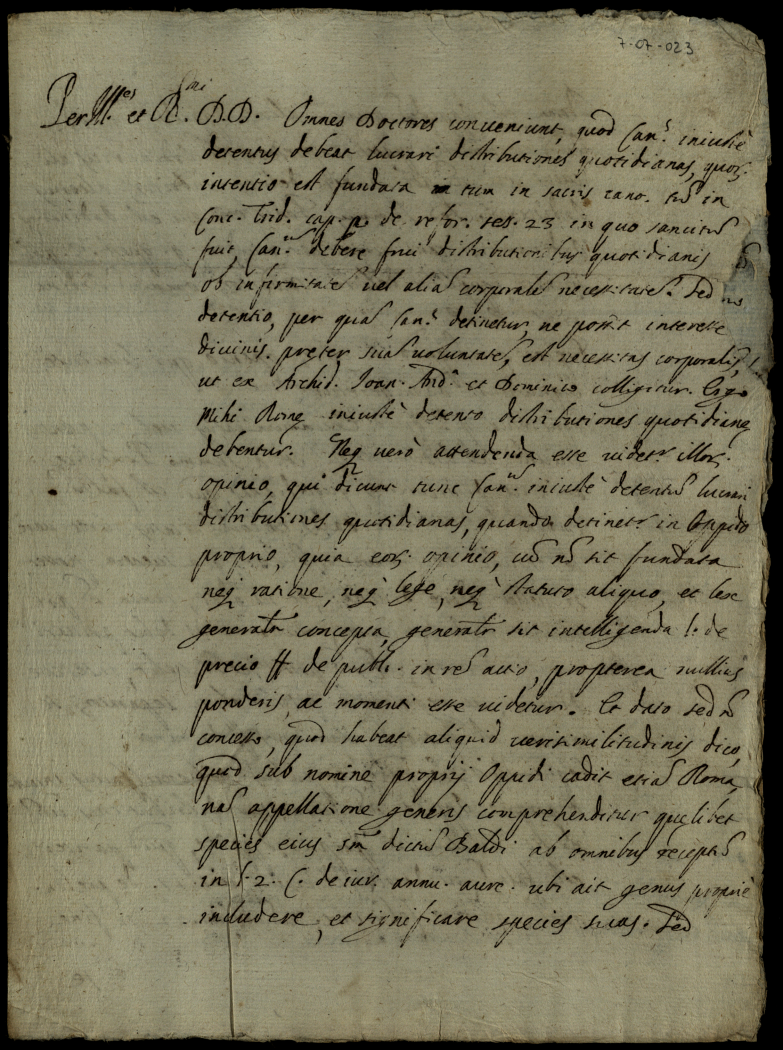 7-07-023
Per Ill.es et R.mi D.D. Omnes Doctores conueniunt, quod Can.s iniustè
detentus debeat lucrari distributiones quotidianas, quor.
intentio est fundata tum in sacris cano. tũ in
Conc. Trid. cap. p.o de refor. sess. 23 in quo sancitũ
fuit, Can.m debere frui distributionibus quotidianis
ob infirmitatẽ uel aliã corporalẽ necessitatẽ. Sed
detentio, per quã Can.s detinetur, ne possit interesse
diuinis, preter suã uoluntatẽ, est necessitas corporalis,
ut ex Archid. Ioan. And. et Dominico colligitur. Ergo
Mihi Romę iniustè detento distributiones quotidianę
debentur. Neq uerò attendenda esse uidet.r illor.
opinio, qui dicunt tunc Can.m iniustè detentũ lucrari
distributiones quotidianas, quando detinet.r in Oppido
proprio, quia eor. opinio, cũ nõ sit fundata
neq ratione, neq lege, neq statuto aliquo, et lex
generatr concepta, generatr sit intelligenda l. de
precio ff de publ. in rẽ actio, propterea nullius
ponderis, ac momenti esse uidetur. Et dato sed nõ
concesso, quod habeat aliquid uerisimilitudinis dico,
quod sub nomine proprij Oppidi cadit etiã Roma,
nã appellatione generis comprehenditur quelibet
species eius sm dictũ Baldi ab omnibus receptũ
in l. 2. C. de iur. annu. aure. ubi ait genus propriè
includere, et significare species suas. Sed